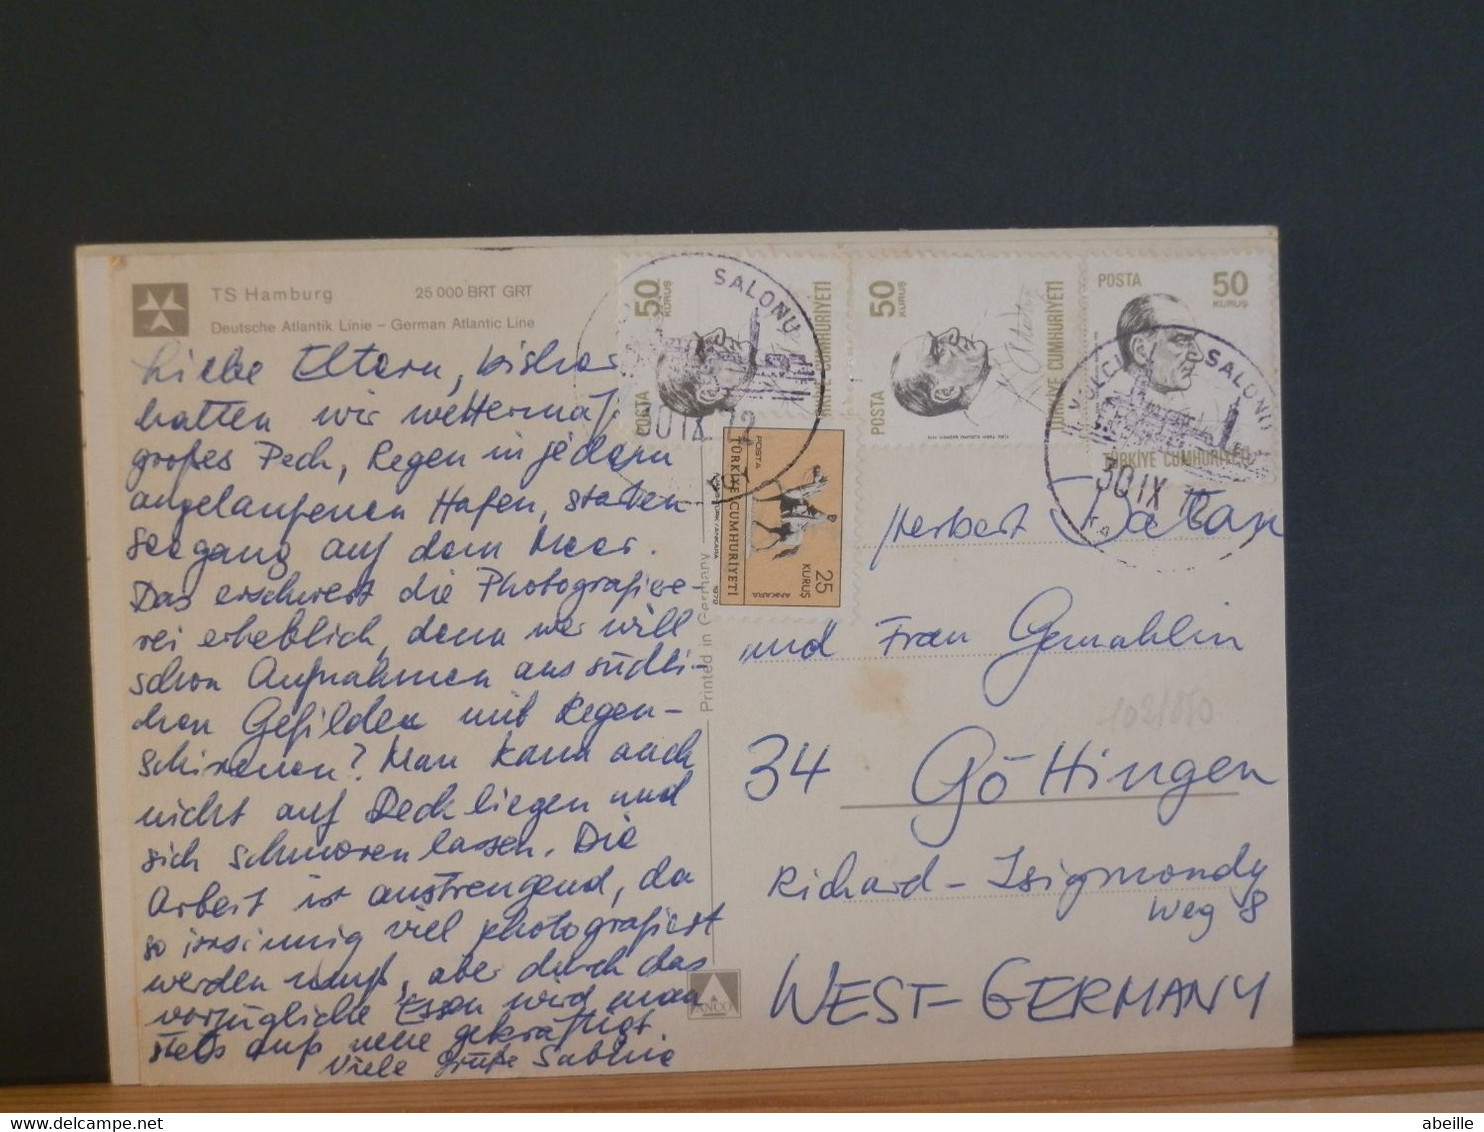 TS Hamburg 25 000 BRT GRT
Deutsche Atlantik Linie – German Atlantic Line
Liebe Eltern, bisher
hatten wir wettermäß
großes Pech, Regen in jedem
angelaufenen Hafen, starken
Seegang auf dem Meer.
Das erschwert die Photografiere-
rei erheblich, denn wer will
schon Aufnahmen aus südli-
chen Gefilden mit Regen-
schirmen? Man kann auch
nicht auf Deck liegen und
sich schmoren lassen. Die
Arbeit ist anstrengend, da
so irrsinnig viel photografiert
werden muß, aber durch das
vorzügliche Essen wird man
stets aufs neue gekräftigt.
Viele Grüße Sabine
Printed in Germany
ANCO
50 KURUŞ
POSTA
TÜRKİYE CUMHURİYETİ
50 KURUŞ
POSTA
TÜRKİYE CUMHURİYETİ
POSTA 50 KURUŞ
TÜRKİYE CUMHURİYETİ
SALONU
30 IX 72
YOLCU SALONU
30 IX
POSTA
TÜRKİYE CUMHURİYETİ
25 KURUŞ
ANKARA 1972
Herbert
und Frau Gemahlin
34 Göttingen
Richard-Zsigmondy
Weg 8
WEST-GERMANY
abeille